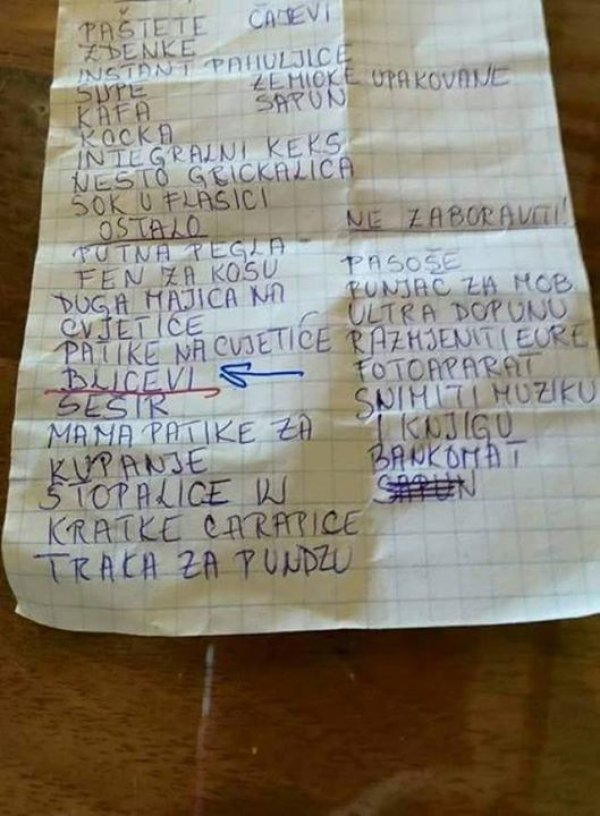 PAŠTETE
ZDENKE
INSTANT PAHULJICE
SUPE
KAFA
KOCKA
INTEGRALNI KEKS
NESTO GRICKALICA
SOK U FLASICI
ČAJEVI
ZEMICKE UPAKOVANE
SAPUN
OSTALO
PUTNA PEGLA
FEN ZA KOSU
DUGA MAJICA NA
CVJETIĆE
PATIKE NA CVJETIĆE
BLICEVI
SESIR
MAMA PATIKE ZA
KUPANJE
STOPALICE ILI
KRATKE CARAPICE
TRAKA ZA PUNDZU
NE ZABORAVITI!
PASOŠE
PUNJAC ZA MOB
ULTRA DOPUNU
RAZMJENITI EURE
FOTOAPARAT
SNIMITI MUZIKU
I KNJIGU
BANKOMAT
SAPUN